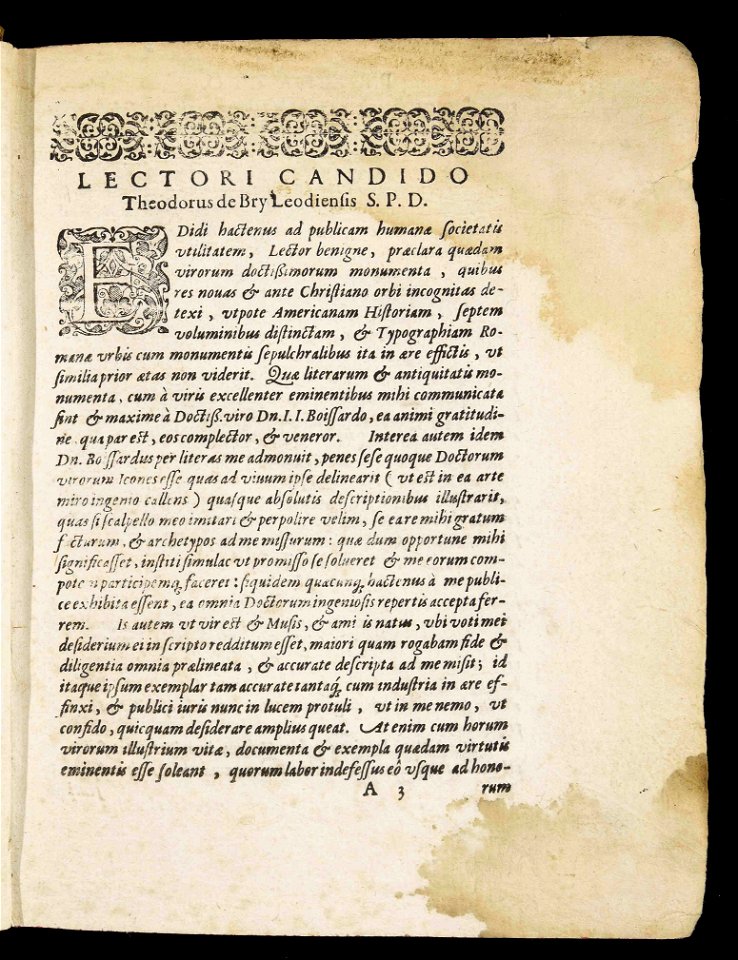 LECTORI CANDIDO
Theodorus de Bry Leodiensis S. P. D.
EDidi hactenus ad publicam humanæ societatis
vtilitatem, Lector benigne, præclara quædam
virorum doctißimorum monumenta, quibus
res nouas & ante Christiano orbi incognitas de-
texi, vtpote Americanam Historiam, septem
voluminibus distinctam, & Typographiam Ro-
manæ vrbis cum monumentis sepulchralibus ita in ære effictis, vt
similia prior ætas non viderit. Quæ literarum & antiquitatis mo-
numenta, cum à viris excellenter eminentibus mihi communicata
sint & maxime à Doctiß. viro Dn. I. I. Boissardo, ea animi gratitudi-
ne, qua par est, eos complector, & veneror. Interea autem idem
Dn. Boissardus per literas me admonuit, penes sese quoque Doctorum
virorum Icones esse quas ad viuum ipse delinearit (vt est in ea arte
miro ingenio callens) quasque absolutis descriptionibus illustrarit,
quas si scalpello meo imitari & perpolire velim, se eare mihi gratum
facturum, & archetypos ad me missurum: quæ dum opportune mihi
significasset, institi simulac vt promisso se solueret & me eorum com-
potem participemq́; faceret: siquidem quacunq; hactenus à me publi-
ce exhibita essent, ea omnia Doctorum ingeniosis repertis accepta fer-
rem. Is autem vt vir est & Musis, & ami is natus, vbi voti mei
desiderium ei in scripto redditum esset, maiori quam rogabam fide &
diligentia omnia prælineata, & accurate descripta ad me misit; id
itaque ipsum exemplar tam accurate tantaq́; cum industria in ære ef-
finxi, & publici iuris nunc in lucem protuli, vt in me nemo, vt
confido, quicquam desiderare amplius queat. At enim cum horum
virorum illustrium vitæ, documenta & exempla quædam virtutis
eminentis esse soleant, quorum labor indefessus eô vsque ad hono-
A 3 rum